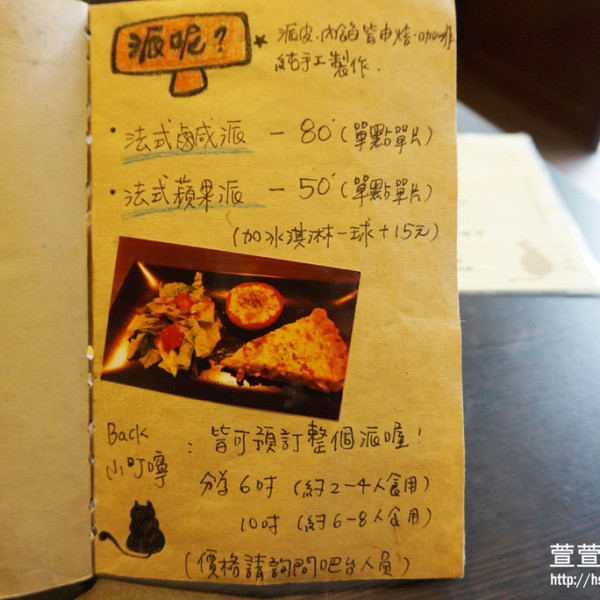 派呢?
★ 派皮、內餡皆由焙·咖啡
純手工製作.
• 法式鹹派 - 80 (單點單片)
• 法式蘋果派 - 50 (單點單片)
(加冰淇淋一球+15元)
Back
小叮嚀
: 皆可預訂整個派喔!
分為6吋 (約2-4人食用)
10吋 (約6-8人食用)
(價格請詢問吧台人員)
萱萱
http://hs